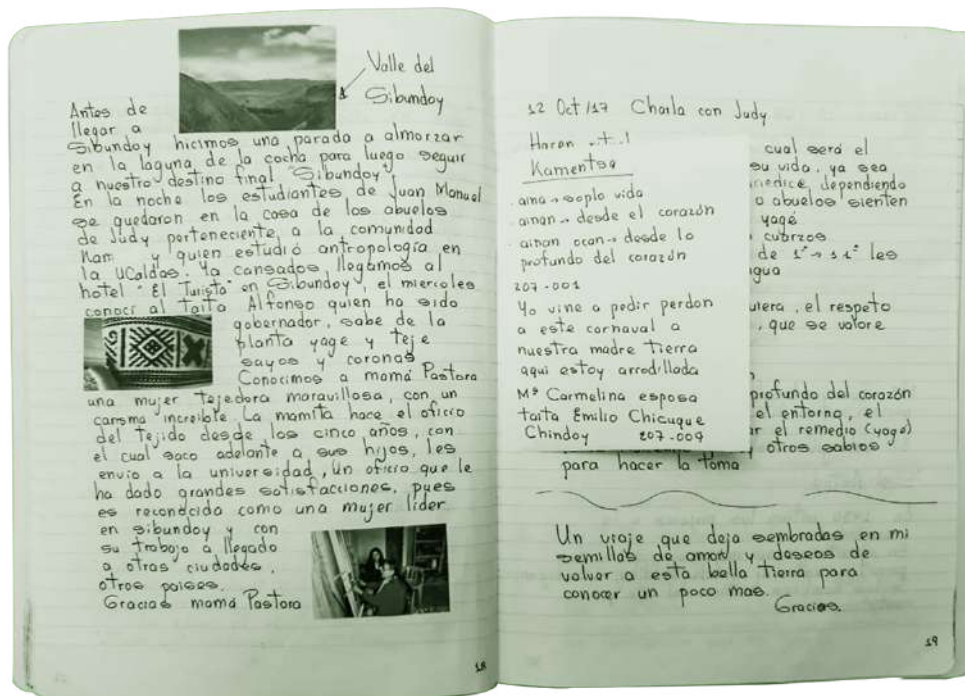 Valle del
Sibundoy
Antes de
llegar a
Sibundoy hicimos una parada a almorzar
en la laguna de la cocha para luego seguir
a nuestro destino final "Sibundoy".
En la noche los estudiantes de Juan Manuel
se quedaron en la casa de los abuelos
de Judy perteneciente a la comunidad
Kam y quien estudió antropología en
la UCaldas. Ya cansados llegamos al
hotel "El Turista" en Sibundoy, el miercoles
conocí al Taita Alfonso quien ha sido
gobernador, sabe de la
planta yage y teje
sayos y coronas
Conocimos a mamá Pastora
una mujer tejedora maravillosa, con un
carisma increible. La mamita hace el oficio
del tejido desde los cinco años, con
el cual saco adelante a sus hijos, les
envio a la universidad, Un oficio que le
ha dado grandes satisfacciones, pues
es reconocida como una mujer líder
en sibundoy y con
su trabajo a llegado
a otras ciudades,
otros paises.
Gracias mamá Pastora
18
12 Oct/17 Charla con Judy
Kamentsa
aina → soplo vida
ainan → desde el corazón
ainan ocan → desde lo
profundo del corazón
207-001
Yo vine a pedir perdon
a este carnaval a
nuestra madre tierra
aqui estoy arrodillada
Mª Carmelina esposa
taita Emilio Chicuque
Chindoy 207-009
cual será el
su vida, ya sea
dependiendo
o abuelos sienten
yagé
cuarzos
de 1° → 11° les
el respeto
, que se valore
profundo del corazón
el entorno, el
el remedio (yage)
otros sabios
para hacer la toma
Un viaje que deja sembradas en mi
semillas de amor y deseos de
volver a esta bella tierra para
conocer un poco mas.
Gracias.
19